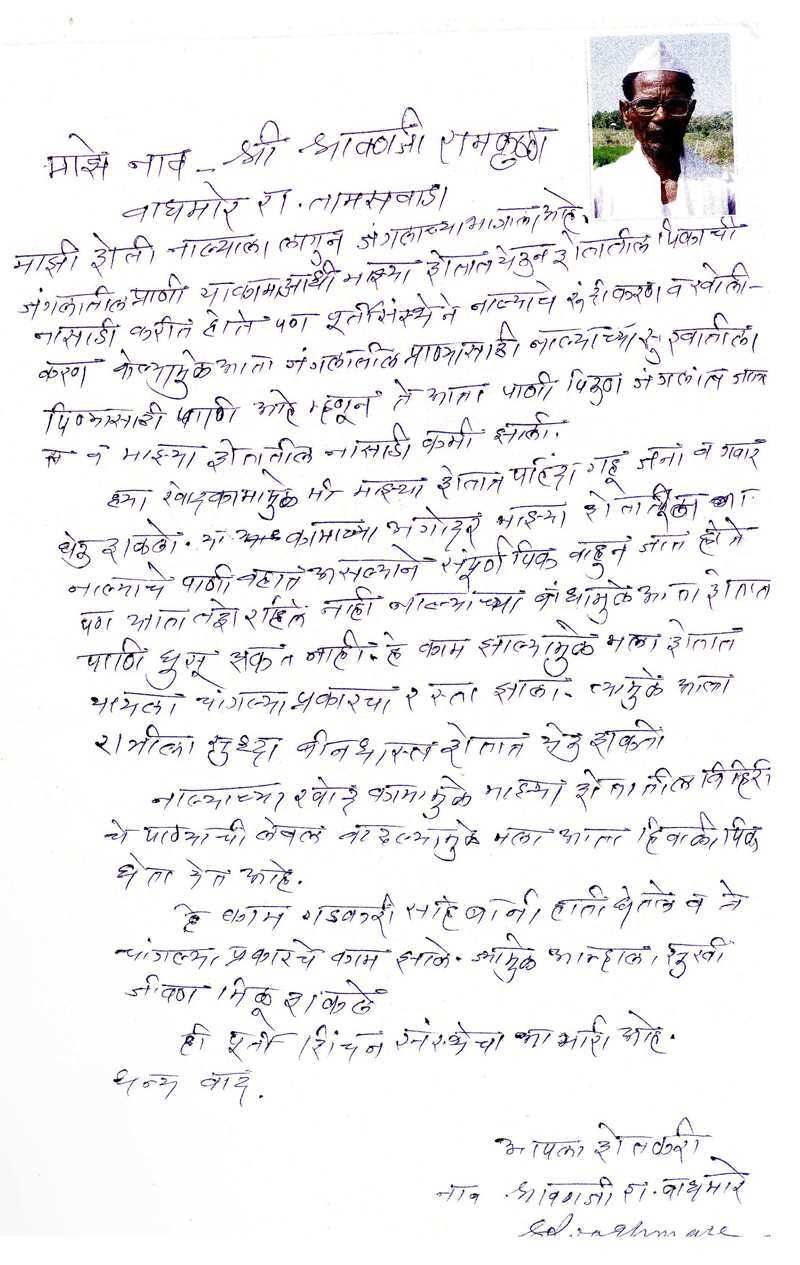 माझे नाव - श्री श्रावणजी रामकृष्ण
वाघमारे रा. तामसवाडा
माझी शेती नाल्याला लागुन जंगलाच्या भागाला आहे.
जंगलातील प्राणी या कामाआधी माझ्या शेतात येउन शेतातील पिकाची
नासाडी करीत होते पण पूर्ती संस्थेने नाल्याचे रूंदीकरण व खोली-
करण केल्यामुळे आता जंगलातील प्राण्यासाठी नाल्याच्या
पिण्यासाठी पाणी आहे म्हणून ते आता पाणी पिउण जंगलात जात
व माझ्या शेतातील नासाडी कमी झाली.
ह्या खोदकामामुळे मी माझ्या शेतात पहिंदा गहू चना व गवार
घेवु शकलो. या कामाच्या अगोदर माझ्या शेतातुन
नाल्याचे पाणी वहात असल्याने संपूर्ण पिक वाहुन जात होते
पण आता तसे राहिले नाही नाल्याच्या बांधामुळे आता शेतात
पाणि घुसू शकत नाही. हे काम झाल्यामुळे मला शेतात
जायला चांगल्या प्रकारचा रस्ता झाला. त्यामुळे आता
रात्रीला सुध्दा बीनधास्त शेतात येवु शकतो
नाल्याच्या खोद कामामुळे माझ्या शेतातील विहिरी
चे पाण्याची लेवल वाढल्यामुळे मला आता हिवाळी पिक
घेता येत आहे.
हे काम गडकरी साहेबानी हाती घेतले व ते
चांगल्या प्रकारचे काम झाले. ज्यामुळे आम्हाला सुखी
जीवण मिळू शकले
मी पूर्ती सिंचन संस्थेचा आभारी आहे.
धन्य वाद.
आपला शेतकरी
नाव श्रावणजी रा. वाघमारे